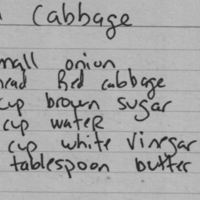 cabbage
mall onion
head Red cabbage
cup brown sugar
cup water
cup white vinegar
tablespoon butter